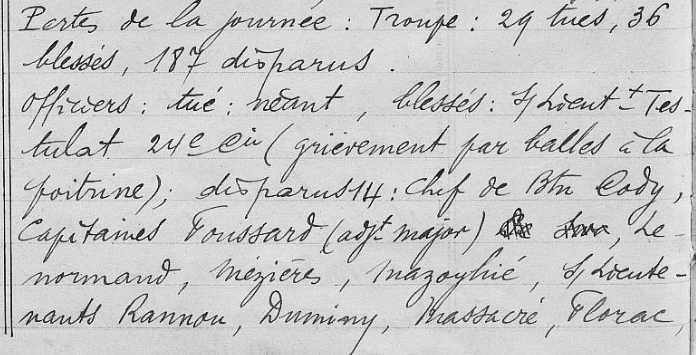 Pertes de la journée : Troupe : 29 tués, 36
blessés, 187 disparus.
Officiers : tué : néant, blessés : S/Lieut^t Tes-
tulat 24e Cie (grièvement par balles à la
poitrine); disparus 14 : Chef de Btn Cody,
Capitaines Toussard (adj^t major) , Le-
normand, Mézières, Mazoyhié, S/Lieute-
nants Rannou, Duminy, Massacré, Florac,